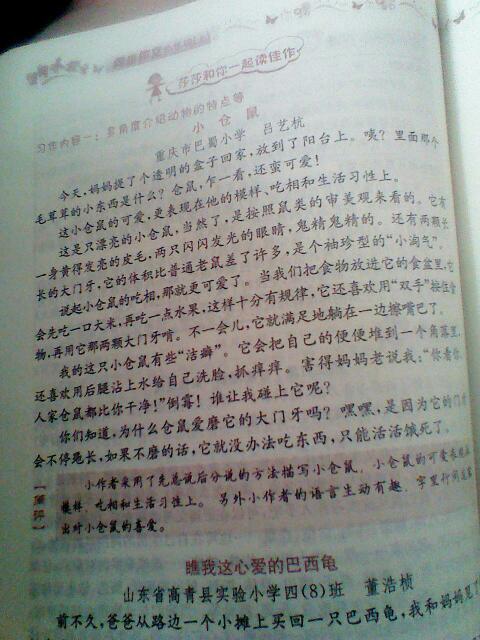 莎莎和你一起读佳作
习作内容一：多角度介绍动物的特点等
小仓鼠
重庆市巴蜀小学 吕艺杭
今天，妈妈提了个透明的盒子回家，放到了阳台上。咦？里面那个
毛茸茸的小东西是什么？仓鼠，乍一看，还蛮可爱！
这小仓鼠的可爱，更表现在他的模样、吃相和生活习性上。
这是只漂亮的小仓鼠，当然了，是按照鼠类的审美观来看的。它有
一身黄得发亮的皮毛，两只闪闪发光的眼睛，鬼精鬼精的。还有两颗长
长的大门牙，它的体积比普通老鼠差了许多，是个袖珍型的“小淘气”。
说起小仓鼠的吃相，那就更可爱了。当我们把食物放进它的食盆里，它
会先吃一口大米，再吃一点水果，这样十分有规律，它还喜欢用“双手”按住食
物，再用它那两颗大门牙啃。不一会儿，它就满足地躺在一边擦嘴巴了。
我的这只小仓鼠有些“洁癖”。它会把自己的便便堆到一个角落里，
还喜欢用后腿沾上水给自己洗脸，抓痒痒。害得妈妈老说我：“你看你，
人家仓鼠都比你干净！”倒霉！谁让我碰上它呢？
你们知道，为什么仓鼠爱磨它的大门牙吗？嘿嘿，是因为它的门牙
会不停地长，如果不磨的话，它就没办法吃东西，只能活活饿死了。
小作者采用了先总说后分说的方法描写小仓鼠，小仓鼠的可爱表现在
模样、吃相和生活习性上。另外小作者的语言生动有趣，字里行间流露
出对小仓鼠的喜爱。
瞧我这心爱的巴西龟
山东省高青县实验小学四（8）班 董浩桢
前不久，爸爸从路边一个小摊上买回一只巴西龟，我和妈妈见了